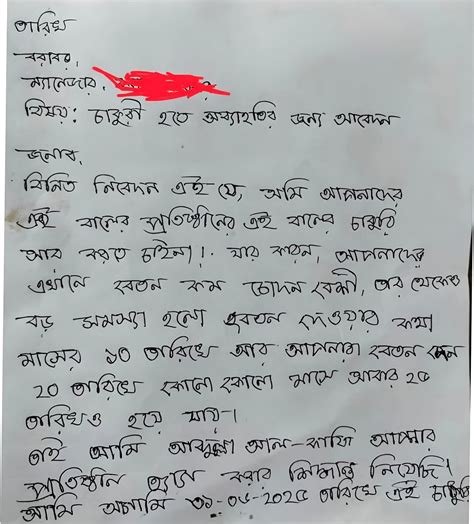 তারিখ
বরাবর,
ম্যানেজার,
বিষয়: চাকুরী হতে অব্যাহতির জন্য আবেদন
জনাব,
বিনিত নিবেদন এই যে, আমি আপনাদের
এই বালের প্রতিষ্ঠানের এই বালের চাকুরি
আর করতে চাইনা। যার কারন, আপনাদের
এখানে বেতন কম চোদন বেশী, তার থেকেও
বড় সমস্যা হলো বেতন দেওয়ার কথা
মাসের ১০ তারিখে আর আপনারা বেতন দেন
20 তারিখে কোনো কোনো মাসে আবার ২৫
তারিখও হয়ে যায়।
তাই আমি আব্দুল্লা আল-কাফি আপনার
প্রতিষ্ঠান ত্যাগ করার সিদ্ধান্ত নিয়েছি।
আমি আগামি ৩১-০৮-২০২৫ তারিখে এই চাকুরি